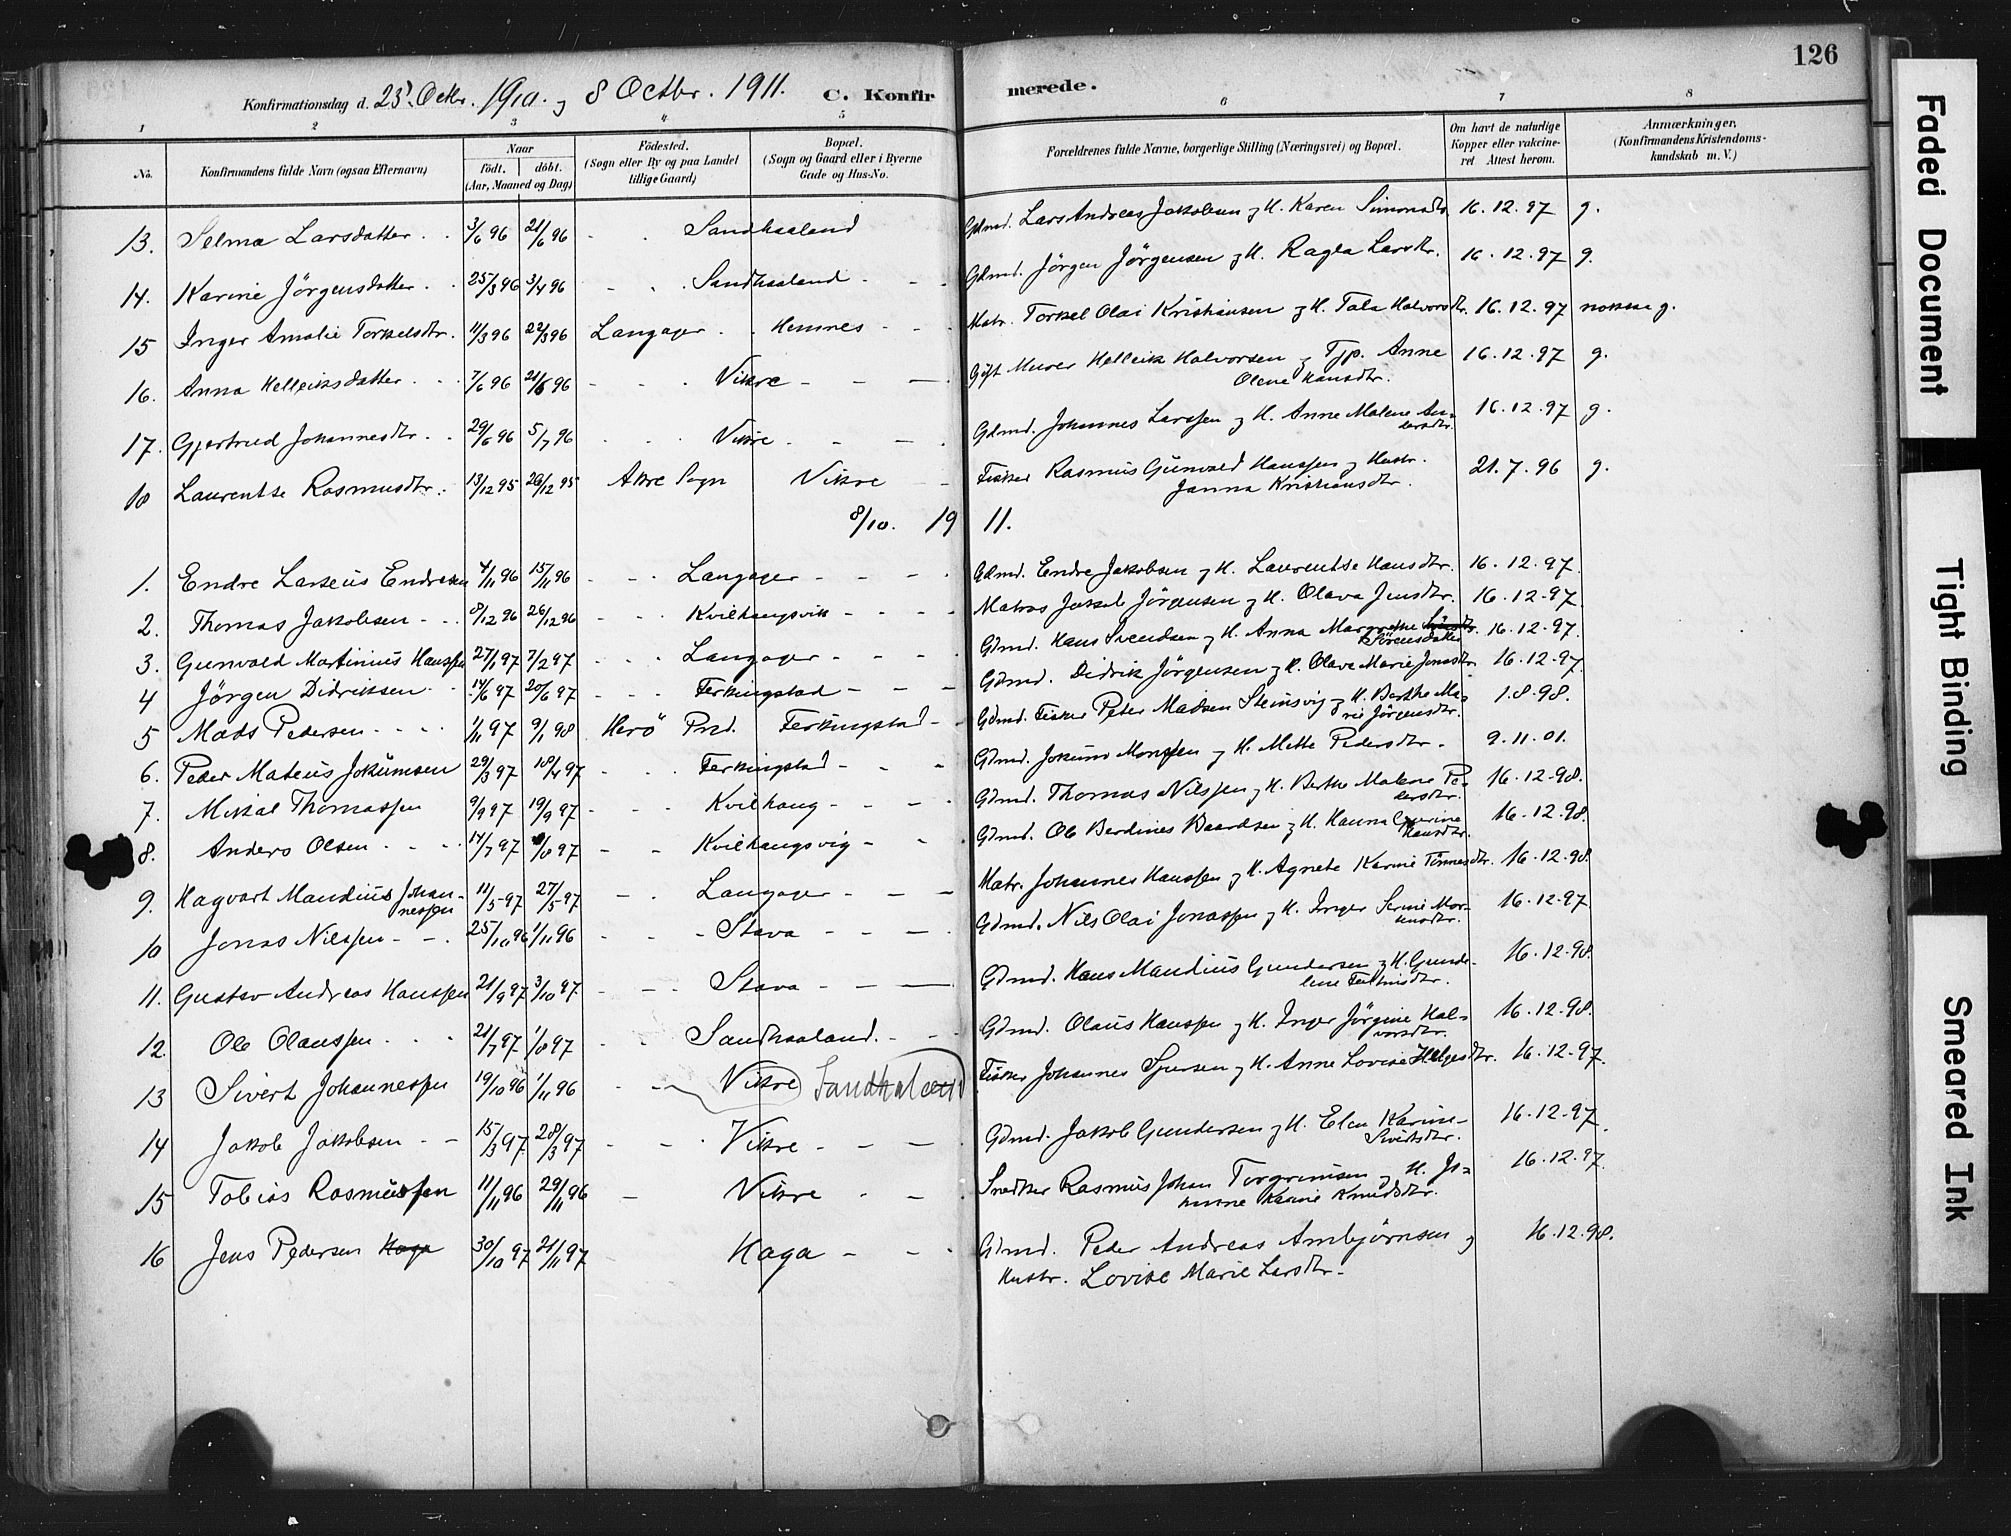 126
Konfirmationsdag d. 23de Octbr. 1910. og 8 Octbr. 1911. C. Konfirmerede.
1 2 3 4 5 6 7 8
No. Konfirmandens fulde Navn (ogsaa Efternavn) Naar født. døbt. (Aar, Maaned og Dag) Fødested. (Sogn eller By og paa Landet tillige Gaard) Bopæl. (Sogn og Gaard eller i Byerne Gade og Hus-No. Forældrenes fulde Navne, borgerlige Stilling (Næringsvei) og Bopæl. Om havt de naturlige Kopper eller vakcineret Attest herom. Anmærkninger, (Konfirmandens Kristendomskundskab m. V.)
13. Selma Larsdatter 3/6 96 21/6 96 Sandhaaland Gdmd. Lars Andreas Jakobsen og H. Karen Simonsdtr. 16.12.97 g.
14. Karine Jörgensdatter 25/3 96 3/4 96 Sandhaaland Gdmd. Jörgen Jörgensen og H. Ragla Larsdtr. 16.12.97 g.
15 Inger Amalie Torkelsdtr. 11/3 96 22/3 96 Langager Hemnes Matr. Torkel Olai Kristiansen og H. Tala Halvorsdtr. 16.12.97 noksaa g.
16. Anna Helleiksdatter 7/6 96 21/6 96 Vikre Gift Murer Helleik Halvorsen og Tjp. Anne
Olene Hansdtr. 16.12.97 g.
17. Gjertrud Johannesdtr. 29/6 96 5/7 96 Vikre Gdmd. Johannes Larssen og H. Anne Malene An-
dersdtr. 16.12.97 g.
18 Laurentse Rasmusdtr. 13/12 95 26/12 95 Akre Sogn Vikre Fisker Rasmus Gunvald Hanssen og Hustr.
Janna Kristiansdtr. 21.7.96 g.
8/10. 1911.
1. Endre Larseus Endresen 4/11 96 15/11 96 Langager Gdmd. Endre Jakobsen og H. Laurentse Hansdtr. 16.12.97.
2. Thomas Jakobsen 8/12 96 26/12 96 Kvilhaugsvik Matros Jakob Jörgensen og H. Olava Jensdtr. 16.12.97
3. Gunvald Martinius Hanssen 27/1 97 7/2 97 Langager Gdmd. Hans Svendsen og H. Anna Margrethe
Sörensdatter 16.12.97.
4 Jörgen Didriksen 14/6 97 20/6 97 Ferkingstad Gdmd. Didrik Jörgensen og H. Olava Marie Jonasdtr. 16.12.97.
5 Mads Pedersen 1/11 97 9/1 98 Herö Prd. Ferkingstad Gdmd. Fisker Peter Madsen Steinsvig og H. Berthe Ma-
rie Jörgensdtr. 1.8.98.
6. Peder Mateus Jokumsen 29/3 97 18/4 97 Ferkingstad Gdmd. Jokum Monssen og H. Mette Pedersdtr. 9.11.01.
7. Mikal Thomassen 9/9 97 19/9 97 Kvilhaug Gdmd. Thomas Nilssen og H. Berthe Malene Pe-
dersdtr. 16.12.98.
8. Anders Olsen 14/7 97 /8 97 Kvilhaugsvig Gdmd. Ole Berdines Baardsen og H. Hanna Gurine
Hansdtr. 16.12.98.
9. Hagvart Mandius Johan-
nessen 11/5 97 27/5 97 Langager Matr. Johannes Hanssen og H. Agnete Karine Tönnesdtr. 16.12.98
10 Jonas Nilssen 25/10 96 1/11 96 Stava Gdmd. Nils Olai Jonassen og H. Inger Serine Mor-
tensdtr. 16.12.97
11. Gustav Andreas Hanssen 21/9 97 3/10 97 Stava Gdmd. Hans Mandius Gundersen og H. Gunde-
line Feltinsdtr. 16.12.98
12. Ole Olaussen 21/7 97 1/8 97 Sandhaaland. Gdmd. Olaus Hanssen og H. Inger Jörgine Hal-
vorsdtr. 16.12.98.
13 Sivert Johannessen 19/10 96 1/11 96 Vikre Sandhaland Fisker Johannes Sjursen og H. Anne Lovise Helgesdtr. 16.12.97.
14 Jakob Jakobsen 15/3 97 28/3 97 Vikre Gdmd. Jakob Gundersen og H. Elen Karine
Sivertsdtr. 16.12.97.
15 Tobias Rasmussen 11/11 96 29/11 96 Vikre Snedker Rasmus Johan Torgrimsen og H. Jo-
hanne Karine Knudsdtr. 16.12.97.
16 Jens Pedersen Haga 30/10 97 21/11 97 Haga Gdmd. Peder Andreas Ambjørnsen og
Hustr. Lovise Marie Larsdtr. 16.12.98.
Faded Document
Tight Binding
Smeared Ink